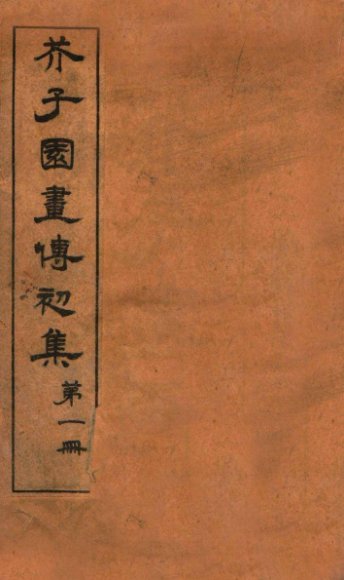 芥子園畫傳初集
第一冊